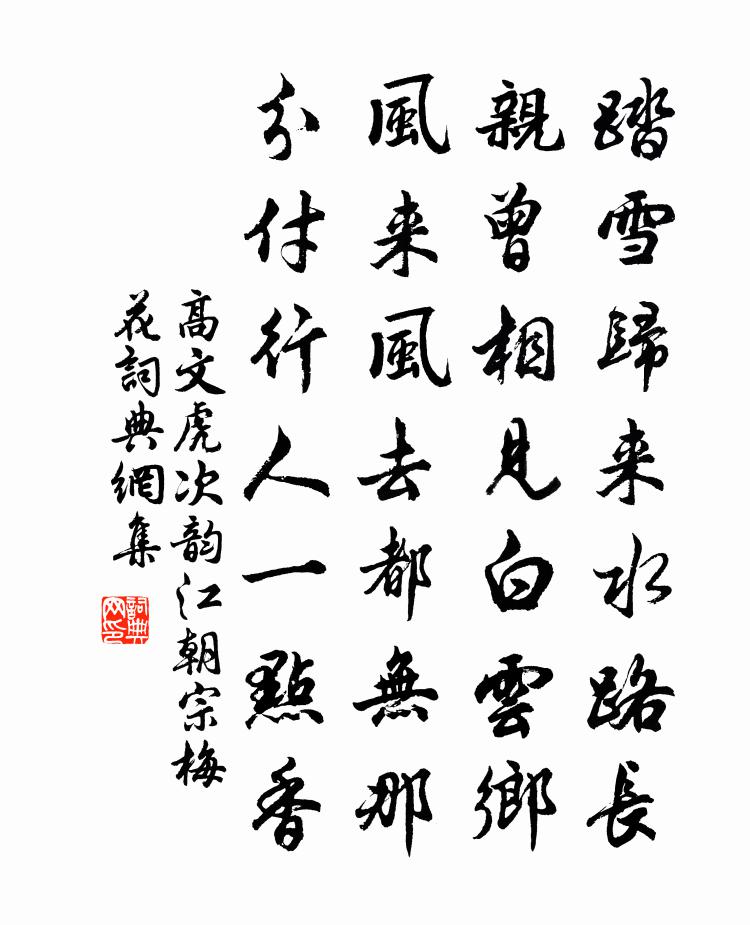 踏雪歸来水路長
親曾相見白雲鄉
風来風去都無那
分付行人一點香
高文虎次韵江朝宗梅
花詞典網集
詞典网印